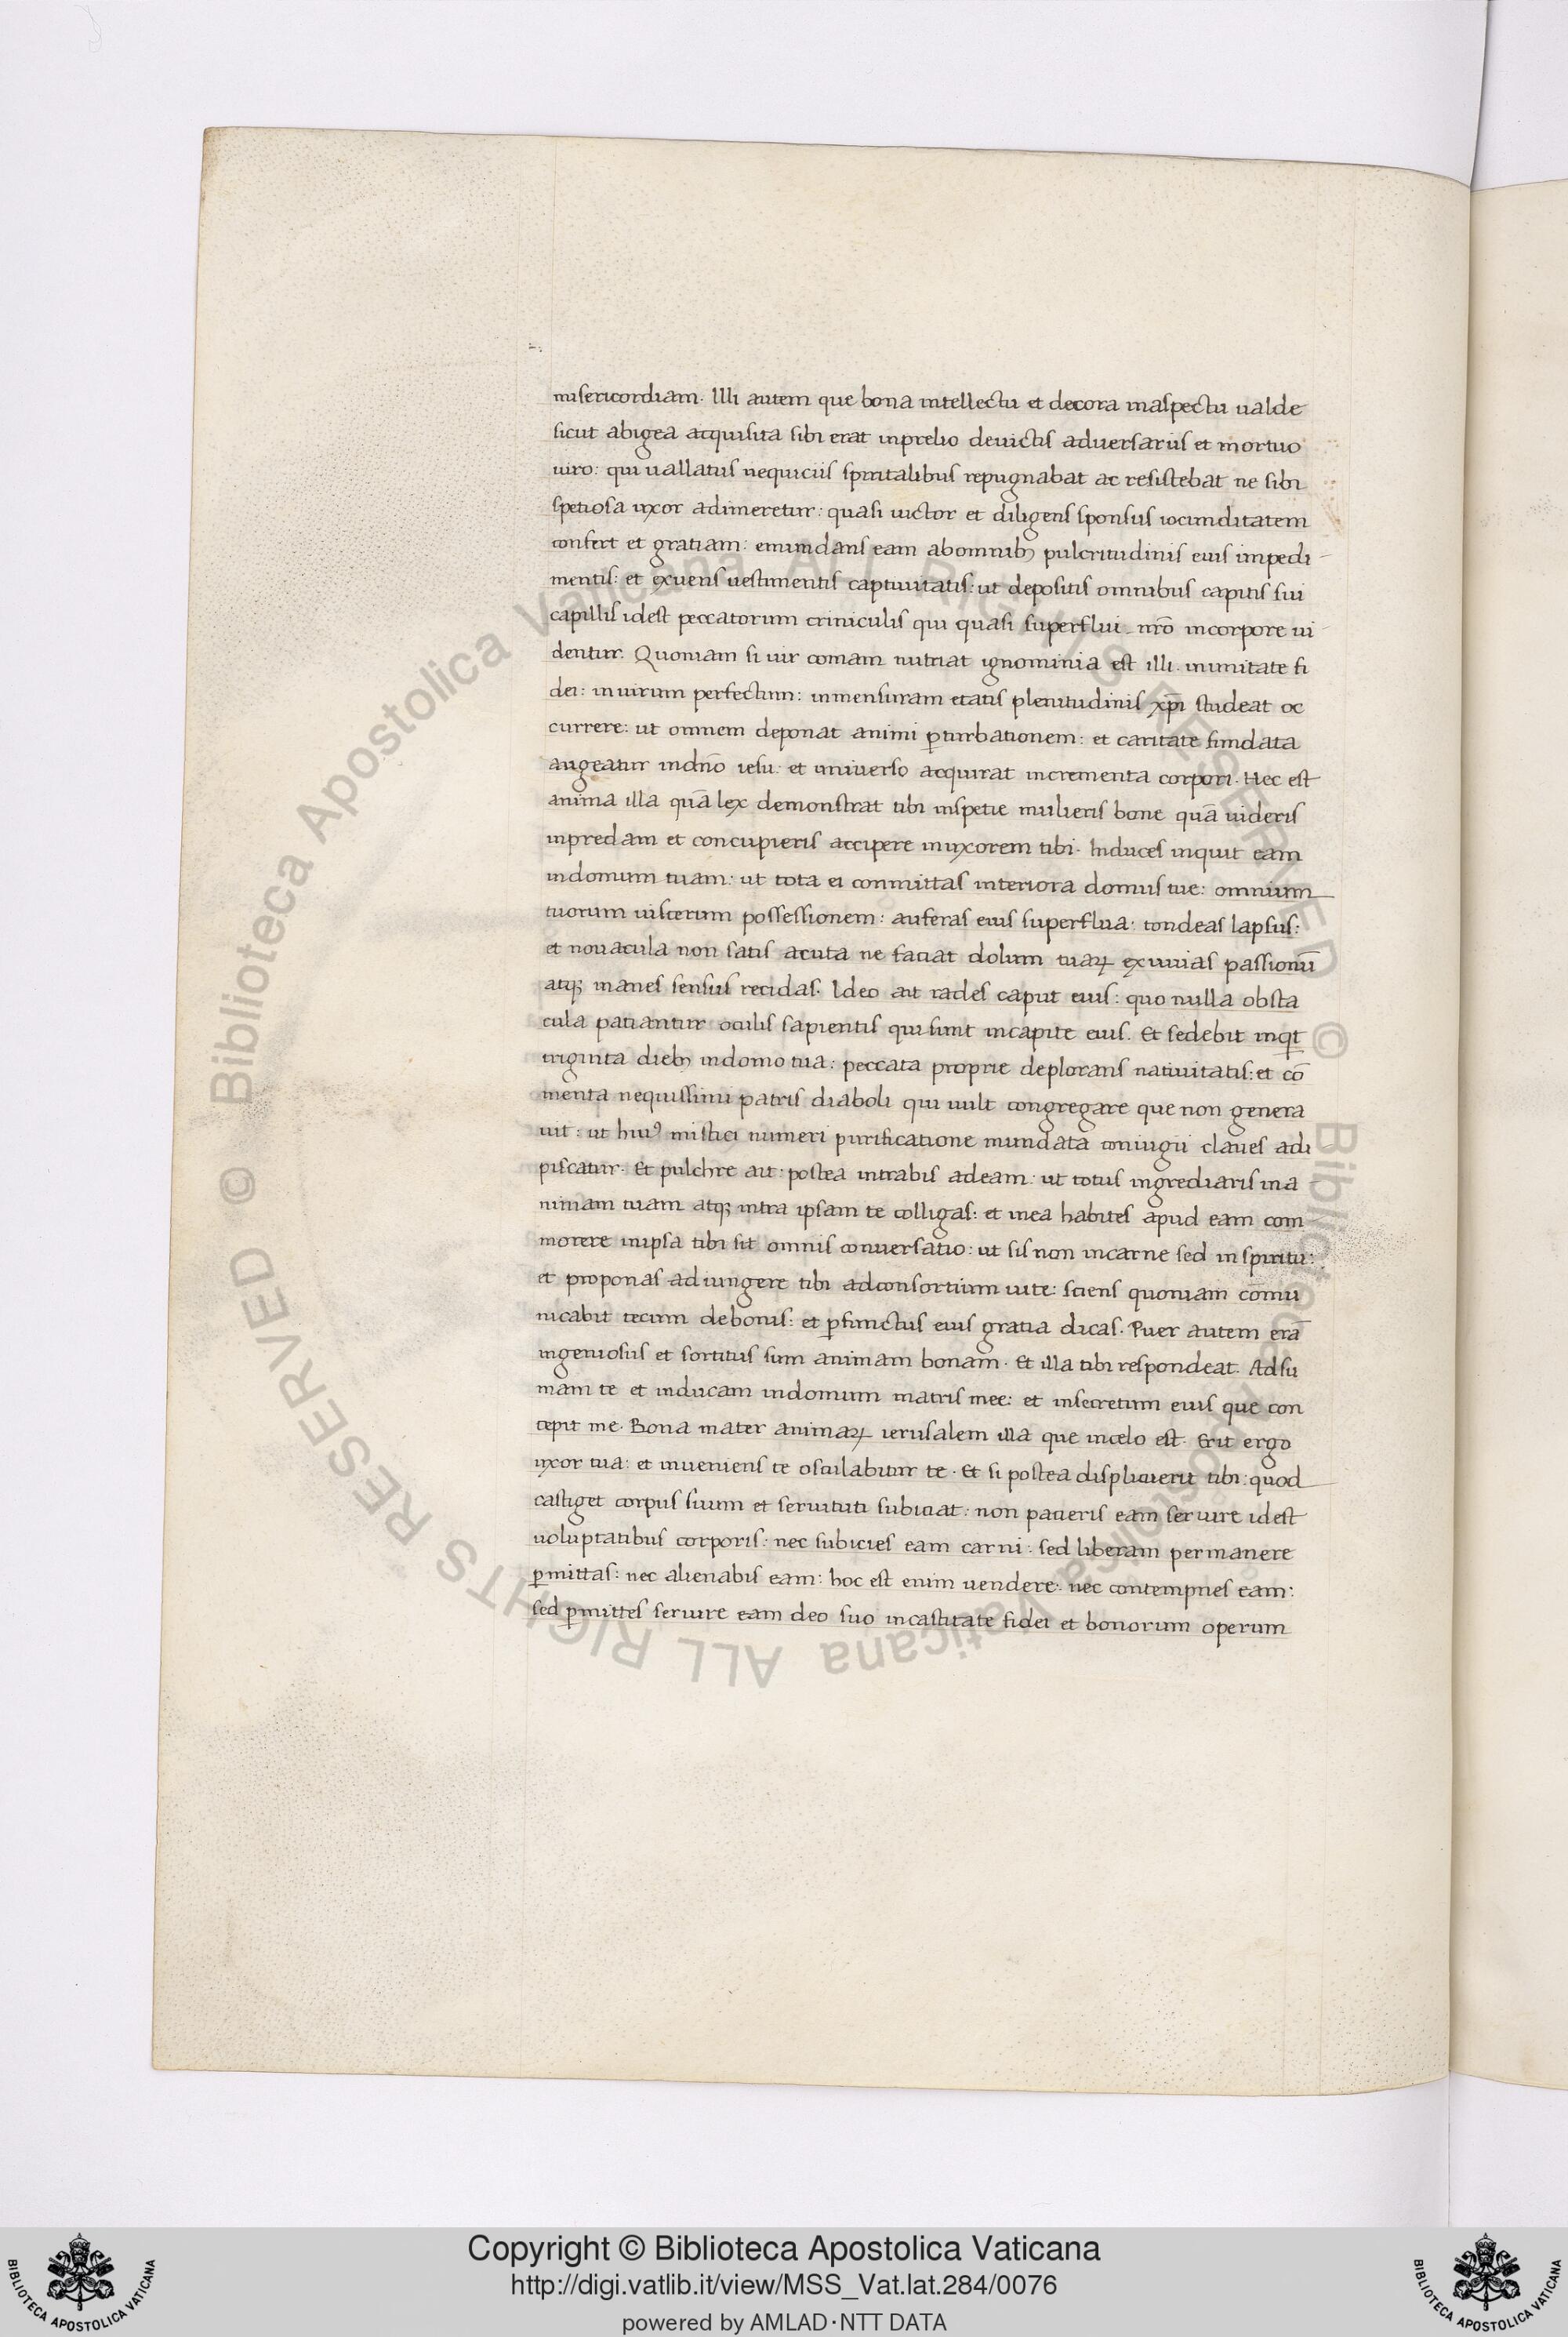 misericordiam. Illi autem que bona intellectu et decora inaspectu ualde
sicut abigea acquisita sibi erat inprelio deuictis adversariis et mortuo
uiro: qui uallatus nequiciis spiritalibus repugnabat ac resistebat ne sibi
spetiosa uxor adimeretur: quasi uictor et diligens sponsus iocunditatem
confert et gratiam: emundans eam abomnibꝫ pulcritudinis eius impedi-
mentis: et exuens uestimentis captiuitatis: ut depositis omnibus capitis sui
capillis idest peccatorum criniculis qui quasi superflui nr̄o incorpore ui
dentur. Quoniam si uir comam nutriat ignominia est illi. inunitate fi
dei: inuirum perfectum: inmensuram etatis plenitudinis xp̄i studeat oc
currere: ut omnem deponat animi ꝑturbationem: et caritate fundata
augeatur indn̄o iesu: et universo acquirat incrementa corpori. Hec est
anima illa quā lex demonstrat tibi inspetie mulieris bone quā uideris
inpredam et concupieris accipere inuxorem tibi. Induces inquit eam
indomum tuam: ut tota ei committas interiora domus tue: omnium
tuorum uiscerum possessionem: auferas eius superflua: tondeas lapsus:
et nouacula non satis acuta ne faciat dolum tuaꝝ exuuias passionū
atqꝫ inanes sensus recidas. Ideo ait rades caput eius: quo nulla obsta
cula patiantur oculis sapientis qui sunt incapite eius. Et sedebit inqt
triginta diebꝫ indomo tua: peccata proprie deplorans natiuitatis: et cō
menta nequissimi patris diaboli qui uult congregare que non genera
uit: ut huiꝰ mistici numeri purificatione mundata coniugii claues adi
piscatur. Et pulchre ait: postea intrabis adeam: ut totus ingrediaris ina-
nimam tuam atqꝫ intra ipsam te colligas: et inea habites apud eam com-
morere inipsa tibi sit omnis conuersatio: ut sis non incarne sed inspiritu:
et proponas adiungere tibi adconsortium uite: sciens quoniam cōmu
nicabit tecum debonis: et ꝑfunctus eius gratia dicas. Puer autem erā
ingeniosus et sortitus sum animam bonam. Et illa tibi respondeat. Adsu
mam te et inducam indomum matris mee: et insecretum eius que con
cepit me. Bona mater animaꝝ ierusalem illa que incelo est. Erit ergo
uxor tua: et inueniens te osculabitur te. Et si postea displicuerit tibi: quod
castiget corpus suum et seruituti subiciat: non pacieris eam seruire idest
uoluptatibus corporis: nec subicies eam carni: sed liberam permanere
ꝑmittas: nec alienabis eam: hoc est enim uendere: nec contempnes eam:
sed ꝑmittes seruire eam deo suo incastitate fidei et bonorum operum
Biblioteca Apostolica Vaticana ALL RIGHTS RESERVED ©
Biblioteca Apostolica Vaticana ALL RIGHTS RESERVED ©
Copyright © Biblioteca Apostolica Vaticana
http://digi.vatlib.it/view/MSS_Vat.lat.284/0076
powered by AMLAD·NTT DATA
BIBLIOTECA APOSTOLICA VATICANA
BIBLIOTECA APOSTOLICA VATICANA